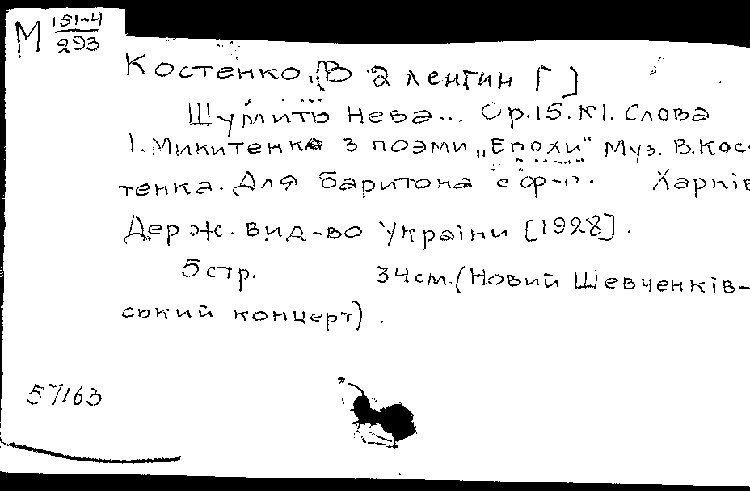 М 151-4
293
Костенко, [Валентин Г]
Шумить Нева... Op.15.№1. Слова
І. Микитенка з поэми „Епохи" Муз. В. Кос-
тенка. Для баритона с ф-п. Харків
Держ. вид-во України [1928].
5 стр. 34 см. (Новий Шевченків-
ський концерт).
57163